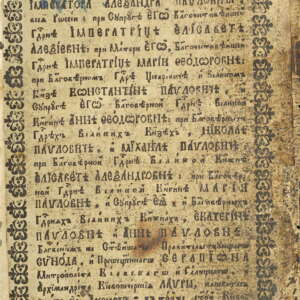 ИМПЕРАТОРА АЛЕѮАНДРА ПАВЛОВИЧА
всеѧ Россіи: при Сꙋпрꙋгѣ ЕГѠ Благочестивѣйшей
Гдⷭ҇рнѣ ИМПЕРАТРИЦѢ ЕЛІСАВЕТѢ
АЛЕѮІЕВНѢ: при Матери ЕГѠ, Благочестивѣйшей
Гдⷭ҇рнѣ ИМПЕРАТРИЦѢ МАРІИ ѲЕОДОРОВНѢ:
при Благовѣрномъ Гдⷭ҇рѣ Цесаревичѣ и Великомъ
Кнѧзѣ КОНСТАНТІНѢ ПАВЛОВИЧѢ, и
Сꙋпрꙋгѣ ЕГѠ Благовѣрной Гдⷭ҇рнѣ Великой
Кнѧгинѣ АННѢ ѲЕОДОРОВНѢ: при Благовѣрныхъ
Гдⷭ҇рѣхъ Великихъ Кнѧзѣхъ, НІКОЛАѢ
ПАВЛОВИЧѢ, и МІХАИЛѢ ПАВЛОВИЧѢ:
при Благовѣрной Гдⷭ҇рнѣ Великой Кнѧжнѣ
ЕЛІСАВЕТѢ АЛЕѮАНДРОВНѢ: при Благовѣрной
Гдⷭ҇рнѣ Великой Кнѧгинѣ МАРІИ
ПАВЛОВНѢ, и Сꙋпрꙋгѣ ЕѦ: и Благовѣрныхъ
Гдⷭ҇рнѧхъ Великихъ Кнѧжнахъ, ЕКАТЕРІНѢ
ПАВЛОВНѢ, и АННѢ ПАВЛОВНѢ:
Благословеніемъ же Ст҃ѣйшагѡ Правительствꙋющагѡ
СѴНОДА, и Преѡсщ҃еннагѡ СЕРАПІѠНА
Митрополита Кіевскагѡ и Галицкагѡ,
Архімандріта Кіевопечерскіѧ ЛАѴРЫ,